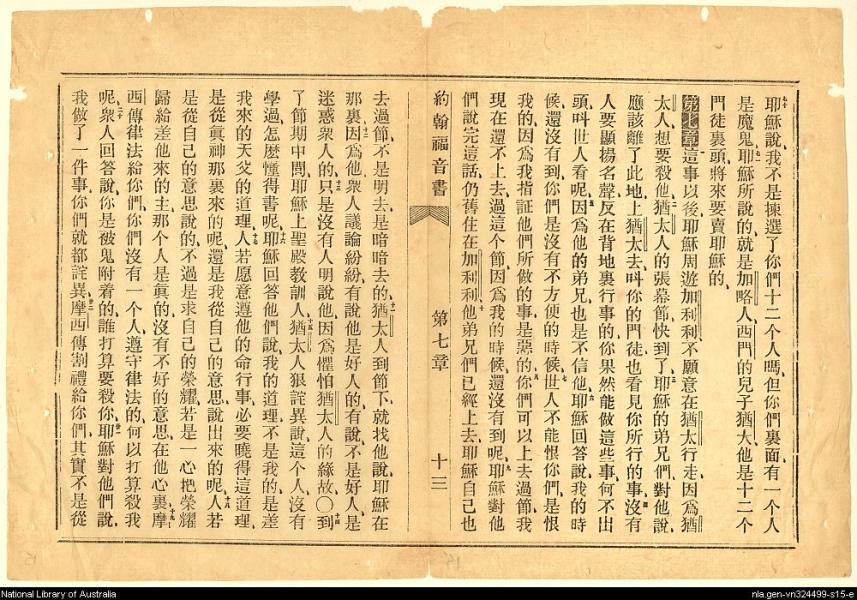 耶穌說、我不是揀選了你們十二个人嗎、但你們裏面有一个人
是魔鬼、耶穌所說的、就是加略人西門的兒子猶大、他是十二个
門徒裏頭、將來要賣耶穌的、
第七章 這事以後、耶穌周遊加利利、不願意在猶太行走、因爲猶
太人想要殺他、猶太人的張幕節快到了、耶穌的弟兄們、對他說、
應該離了此地、上猶太去、叫你的門徒也看見你所行的事、沒有
人要顯揚名聲、反在背地裏行事的、你果然能做這些事、何不出
頭、叫世人看呢、因爲他的弟兄、也是不信他、耶穌回答說、我的時
候還沒有到、你們是沒有不方便的時候、世人不能恨你們、是恨
我的、因爲我指証他們所做的事是惡的、你們可以上去過節、我
現在還不上去過這个節、因爲我的時候、還沒有到呢、耶穌對他
們說完這話、仍舊住在加利利、他弟兄們已經上去、耶穌自己也
約翰福音書 第七章 十三
去過節、不是明去、是暗暗去的、猶太人到節下、就找他、說耶穌在
那裏、因爲他衆人議論紛紛、有說他是好人的、有說不是好人、是
迷惑衆人的、只是沒有人明說他、因爲懼怕猶太人的緣故、〇到
了節期中間、耶穌上聖殿教訓人、猶太人狠詫異、說這个人沒有
學過、怎麼懂得書呢、耶穌回答他們說、我的道理不是我的、是差
我來的天父的道理、人若愿意遵他的命行事、必要曉得這道理、
是從眞神那裏來的呢、還是我從自己的意思說出來的呢、人若
是從自己的意思說的、不過是求自己的榮耀、若是一心把榮耀
歸給差他來的主、那个人是眞的、沒有不好的意思、在他心裏、摩
西傳律法給你們、你們沒有一个人、遵守律法的、何以打算殺我
呢、衆人回答說、你是被鬼附着的、誰打算要殺你、耶穌對他們說、
我做了一件事、你們就都詫異、摩西傳割禮給你們、其實不是從
National Library of Australia
nla.gen-vn324499-s15-e